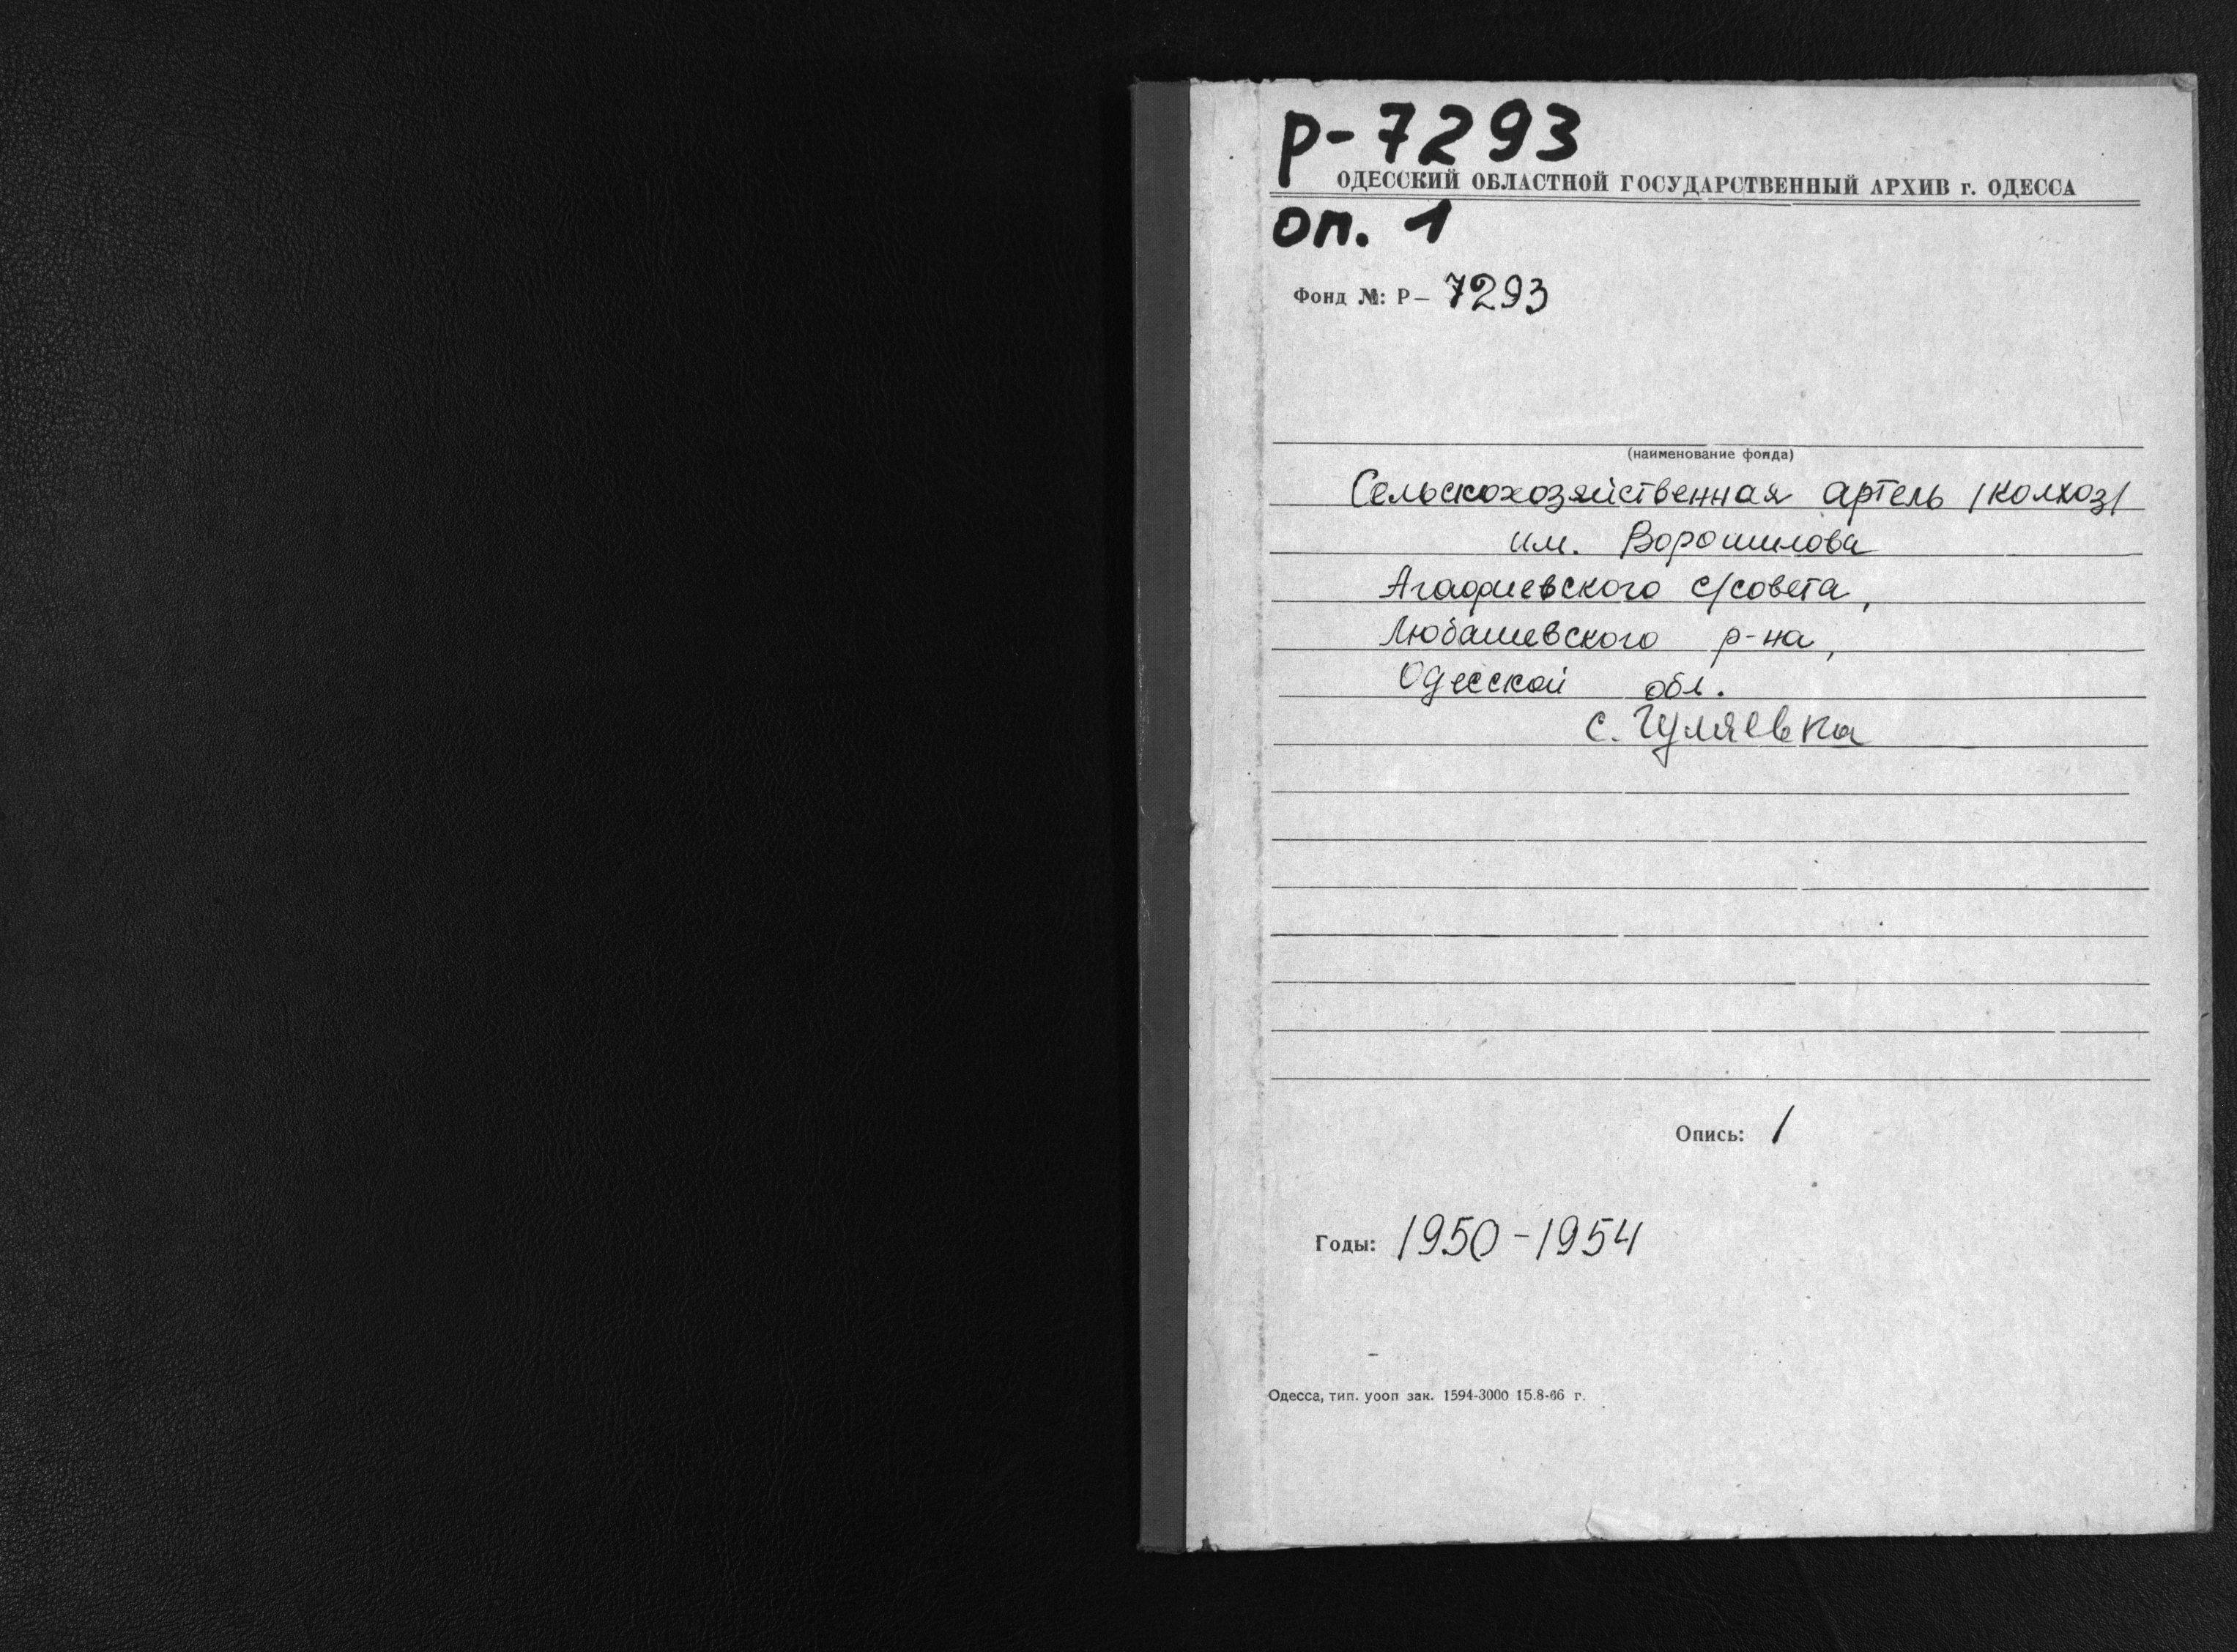 р-7293
ОДЕССКИЙ ОБЛАСТНОЙ ГОСУДАРСТВЕННЫЙ АРХИВ г. ОДЕССА
оп. 1
Фонд №: Р— 7293
(наименование фонда)
Сельскохозяйственная артель /колхоз/
им. Ворошилова
Агафиевского с/совета,
Любашевского р-на,
Одесской обл.
с. Гуляевка
Опись: 1
Годы: 1950-1954
Одесса, тип. уооп зак. 1594-3000 15.8-66 г.